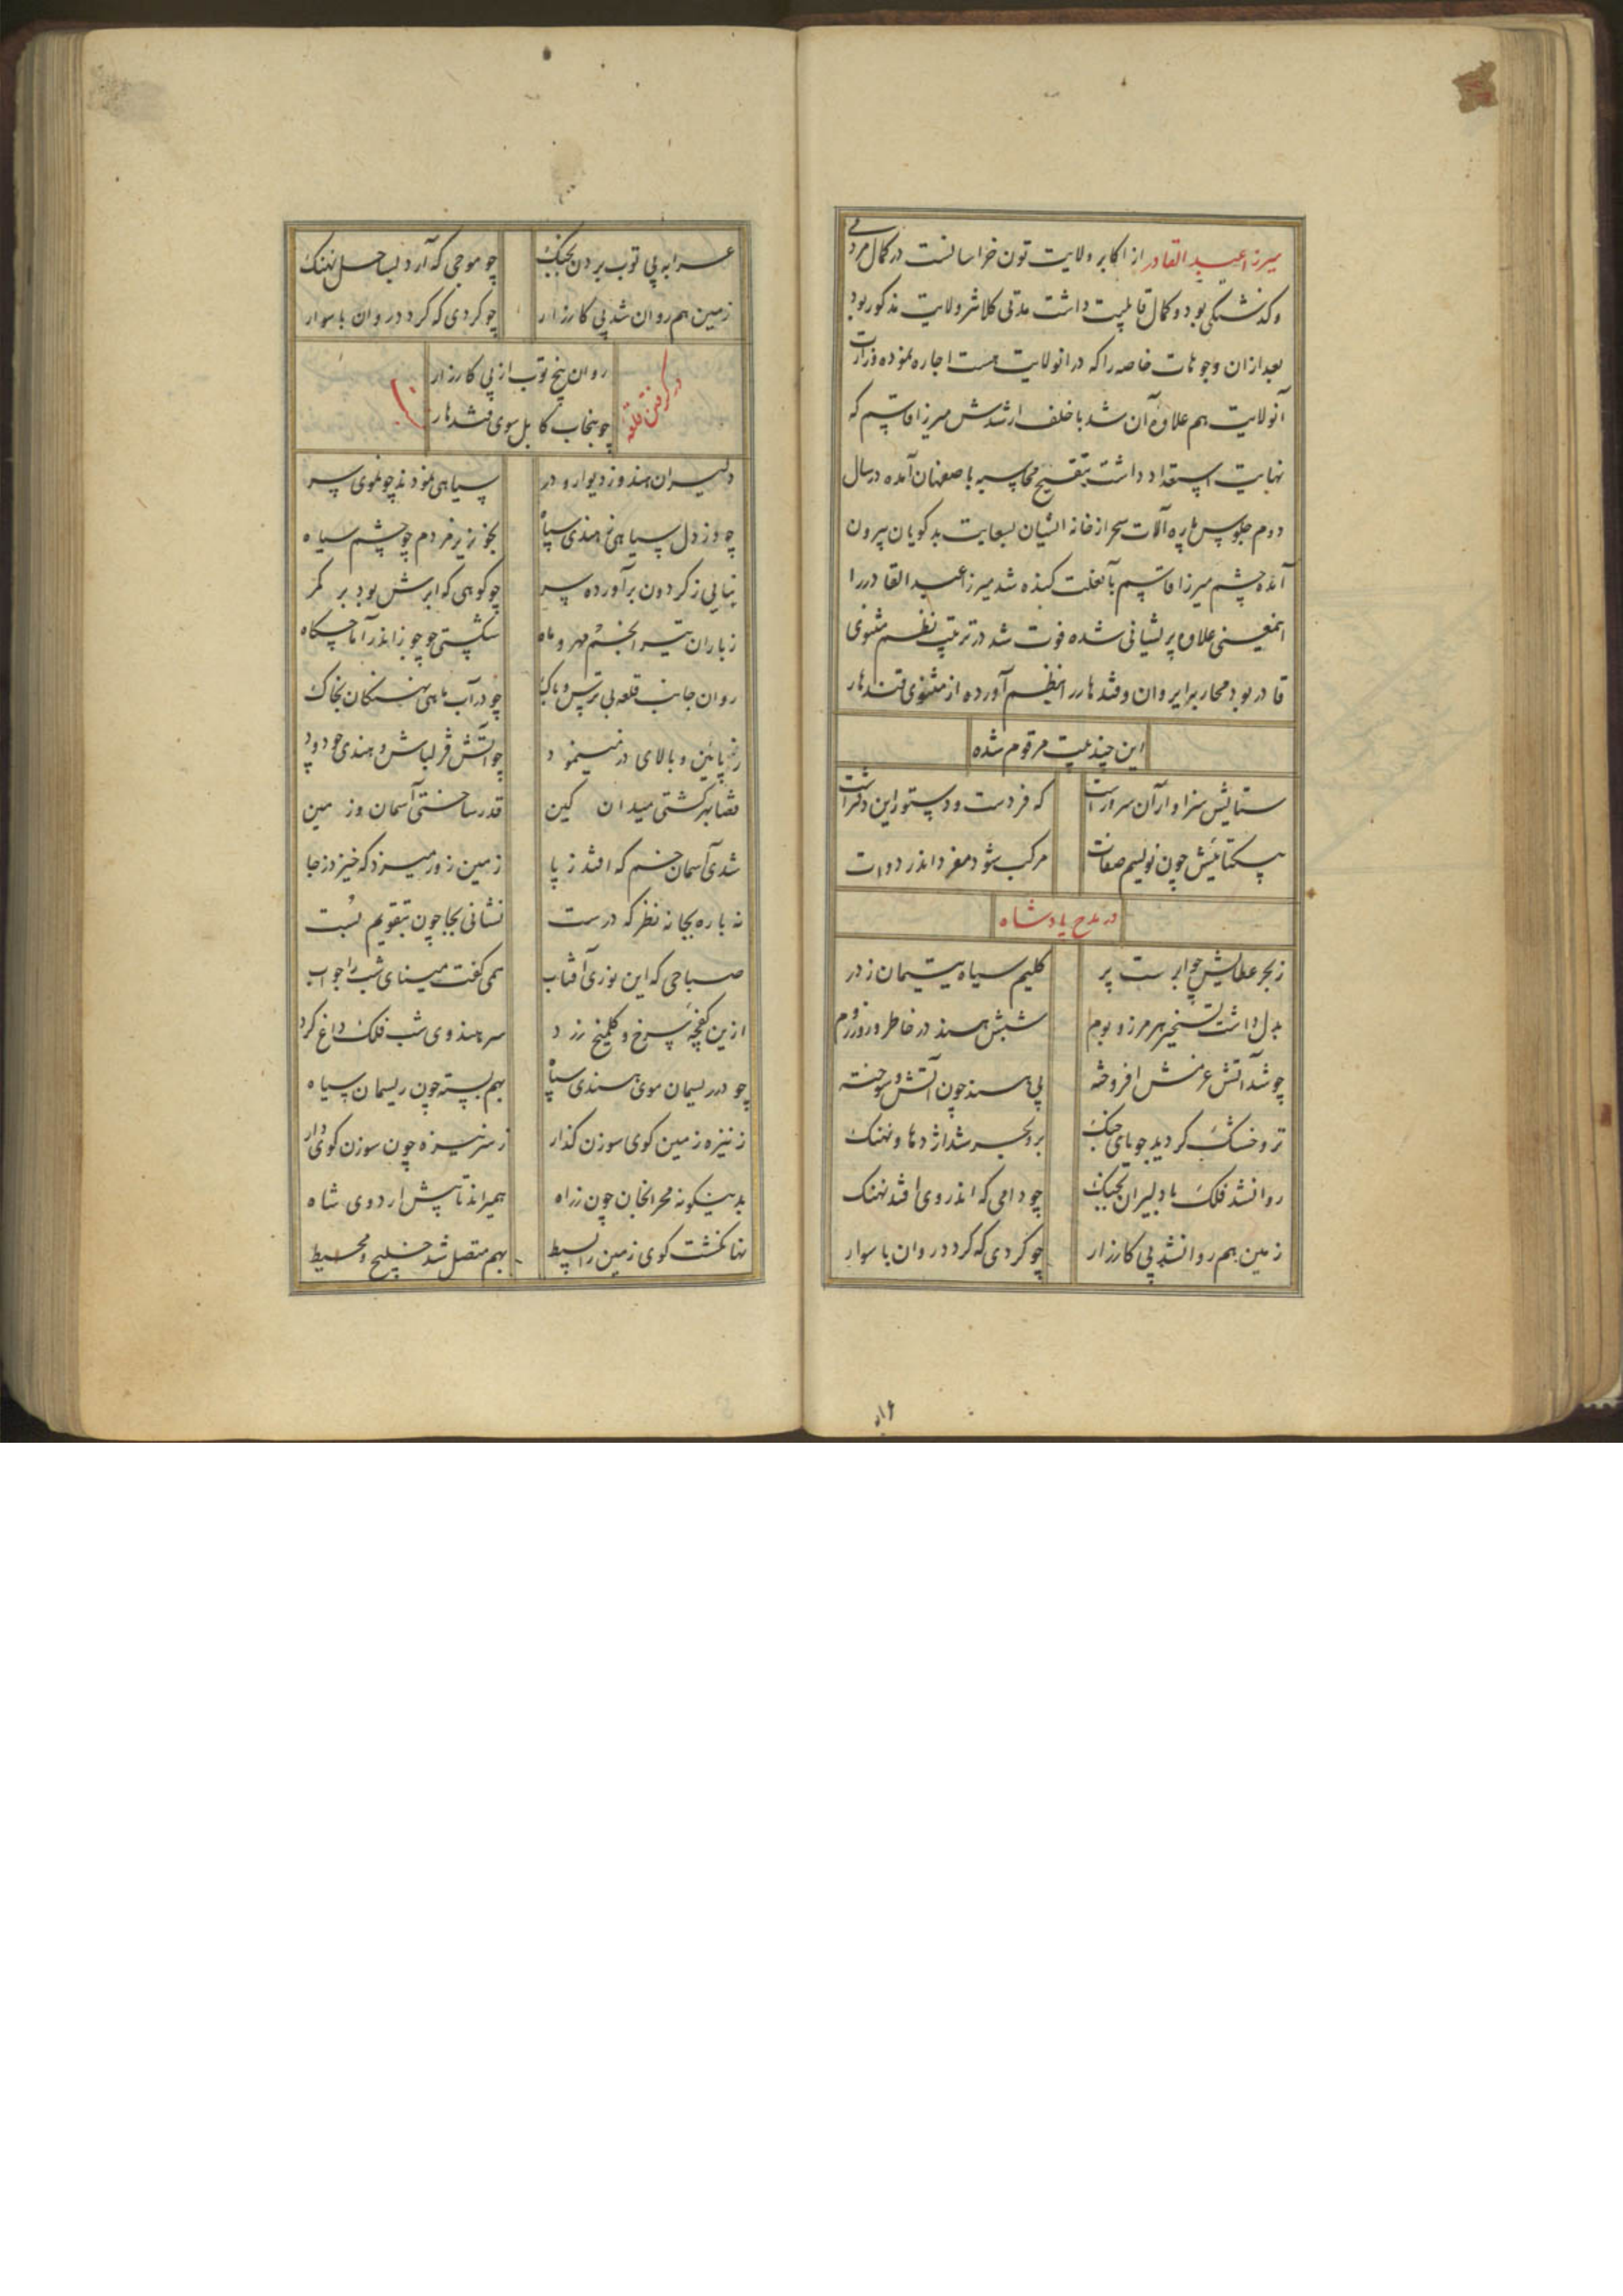 میرزا عبد القادر از اکابر ولایت تون خراسانست در کمال مردمی
و گذشتگی بود و کمال قابلیت داشت مدتی کلانتر ولایت مذکور بود
بعد ازان وجوهات خاصه را که در انولایت هست اجاره نموده وزارت
آنولایت هم علاوه آن شد با خلف ارشدش میرزا قاسم که
نهایت استعداد داشت بتنقیح محاسبه باصفهان آمده در سال
دوم جلوس پاره آلات سحر از خانه ایشان بسعایت بدکویان بیرون
آمده چشم میرزا قاسم بآنعلت کنده شد میرزا عبد القادر را
اینمعنی علاوه پریشانی شده فوت شد در ترتیب نظم مثنوی
قادر بود محاربه ایروان و قندهار را بنظم آورده از مثنوی قندهار
این چند بیت مرقوم شده
ستایش سزاوار آن سرورست که فردست و دستور این دفترست
بیکتائیش چون نویسم صفات مرکب شود مفرد اندر دوات
در مدح پادشاه
ز بحر عطایش چو ابرست پر کلیم سیاه یتیمان ز در
بدل داشت تسخیر هر مرز و بوم شبش هند در خاطر و روز روم
چو شد آتش عزمش افروخته پی هند چون آتش سوخته
تر و خشک کردید جویای جنک بر و بحر شد اژدها و نهنک
روانشد فلک با دلیران بجنک چو دامی که اندر وی افتد نهنک
زمین هم روانشد پی کارزار چو کردی که کردد روان با سوار
عرابه پی توب بردن بجنک چو موجی که آرد بساحل نهنک
زمین هم روان شد پی کارزار چو کردی که کردد روان با سوار
در کرفتن قلعه
روان پنج توب از پی کارزار
چو پنجاب کابل سوی قندهار
دلیران هندو ز دیوار و در سیاهی نمودند چون موی سر
چو زد دل سیاهی ز هندی سپاه بخونریز مردم چو چشم سیاه
بنایی ز کردون برآورده سر چو کوهی که ابرش بود بر کمر
ز باران تیر انجم و مهر و ماه
روان جانب قلعه بی ترس و باک چو در آب ماهی نهنکان بخاک
ز پائین و بالای در مینمود چو آتش قزلباش و هندی چو دود
قضا بهر کشتی میدان کین قدر ساختی آسمان و زمین
شدی آسمان خم که افتد ز پا زمین زور میزد که خیزد ز جا
نه باره بجا نه نظر که درست نشانی بجا چون تقویم نبست
صباحی که این نوزی آفتاب همی کفت مینای شب را جواب
ازین کفچه سرخ و کلمیخ زرد سر هندوی شب فلک داغ کرد
چو در ریسمان موی هندی سپاه بهم بسته چون ریسمان سیاه
ز نیزه زمین کوی سوزن گذار ز سر نیزه چون سوزن کوی دار
بدینکونه محرابخان چون ز راه همیراند تا پیش اردوی شاه
نها نکشت کوی زمین را بسیط بهم متصل شد خلیج و محیط